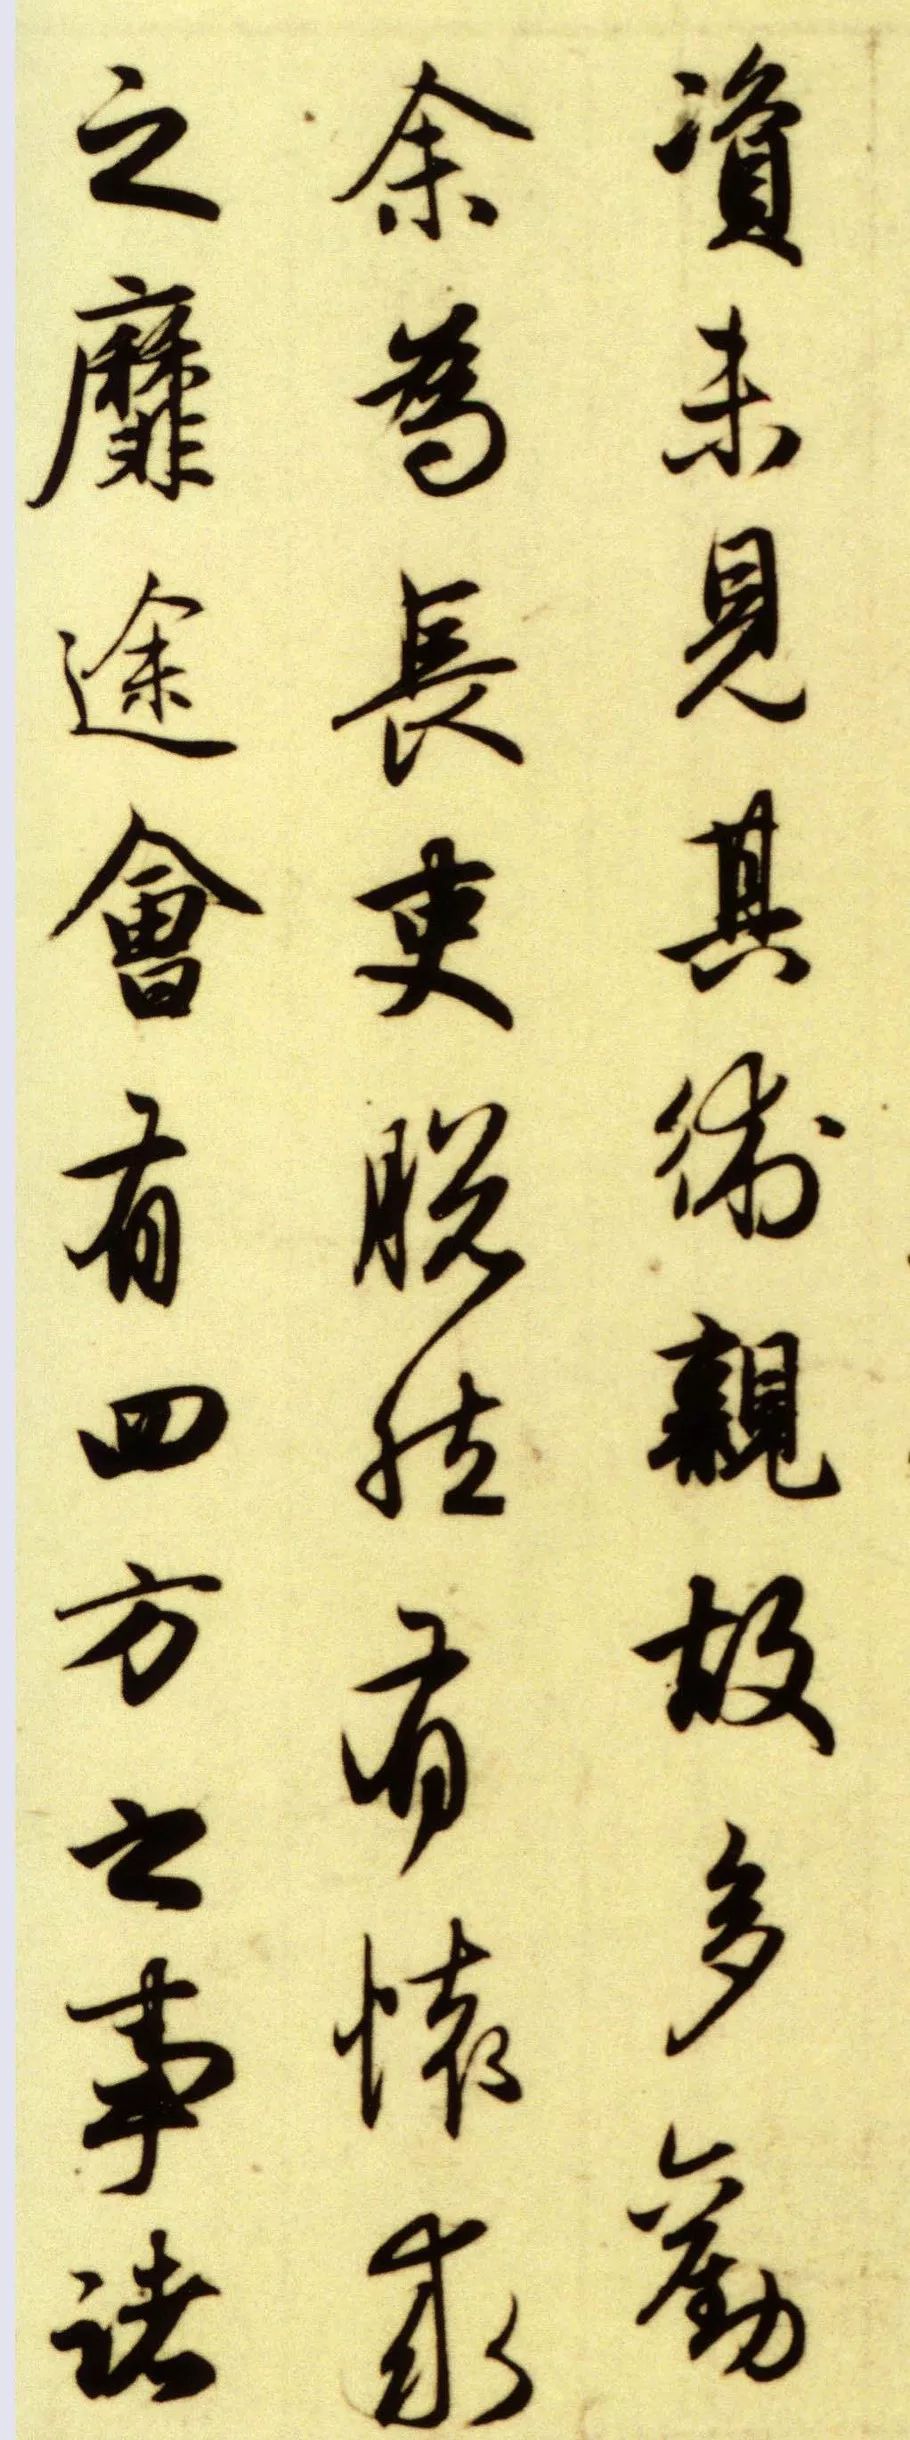 資未見其術親故多勸
余為長吏脫然有懷求
之靡途會有四方之事諸